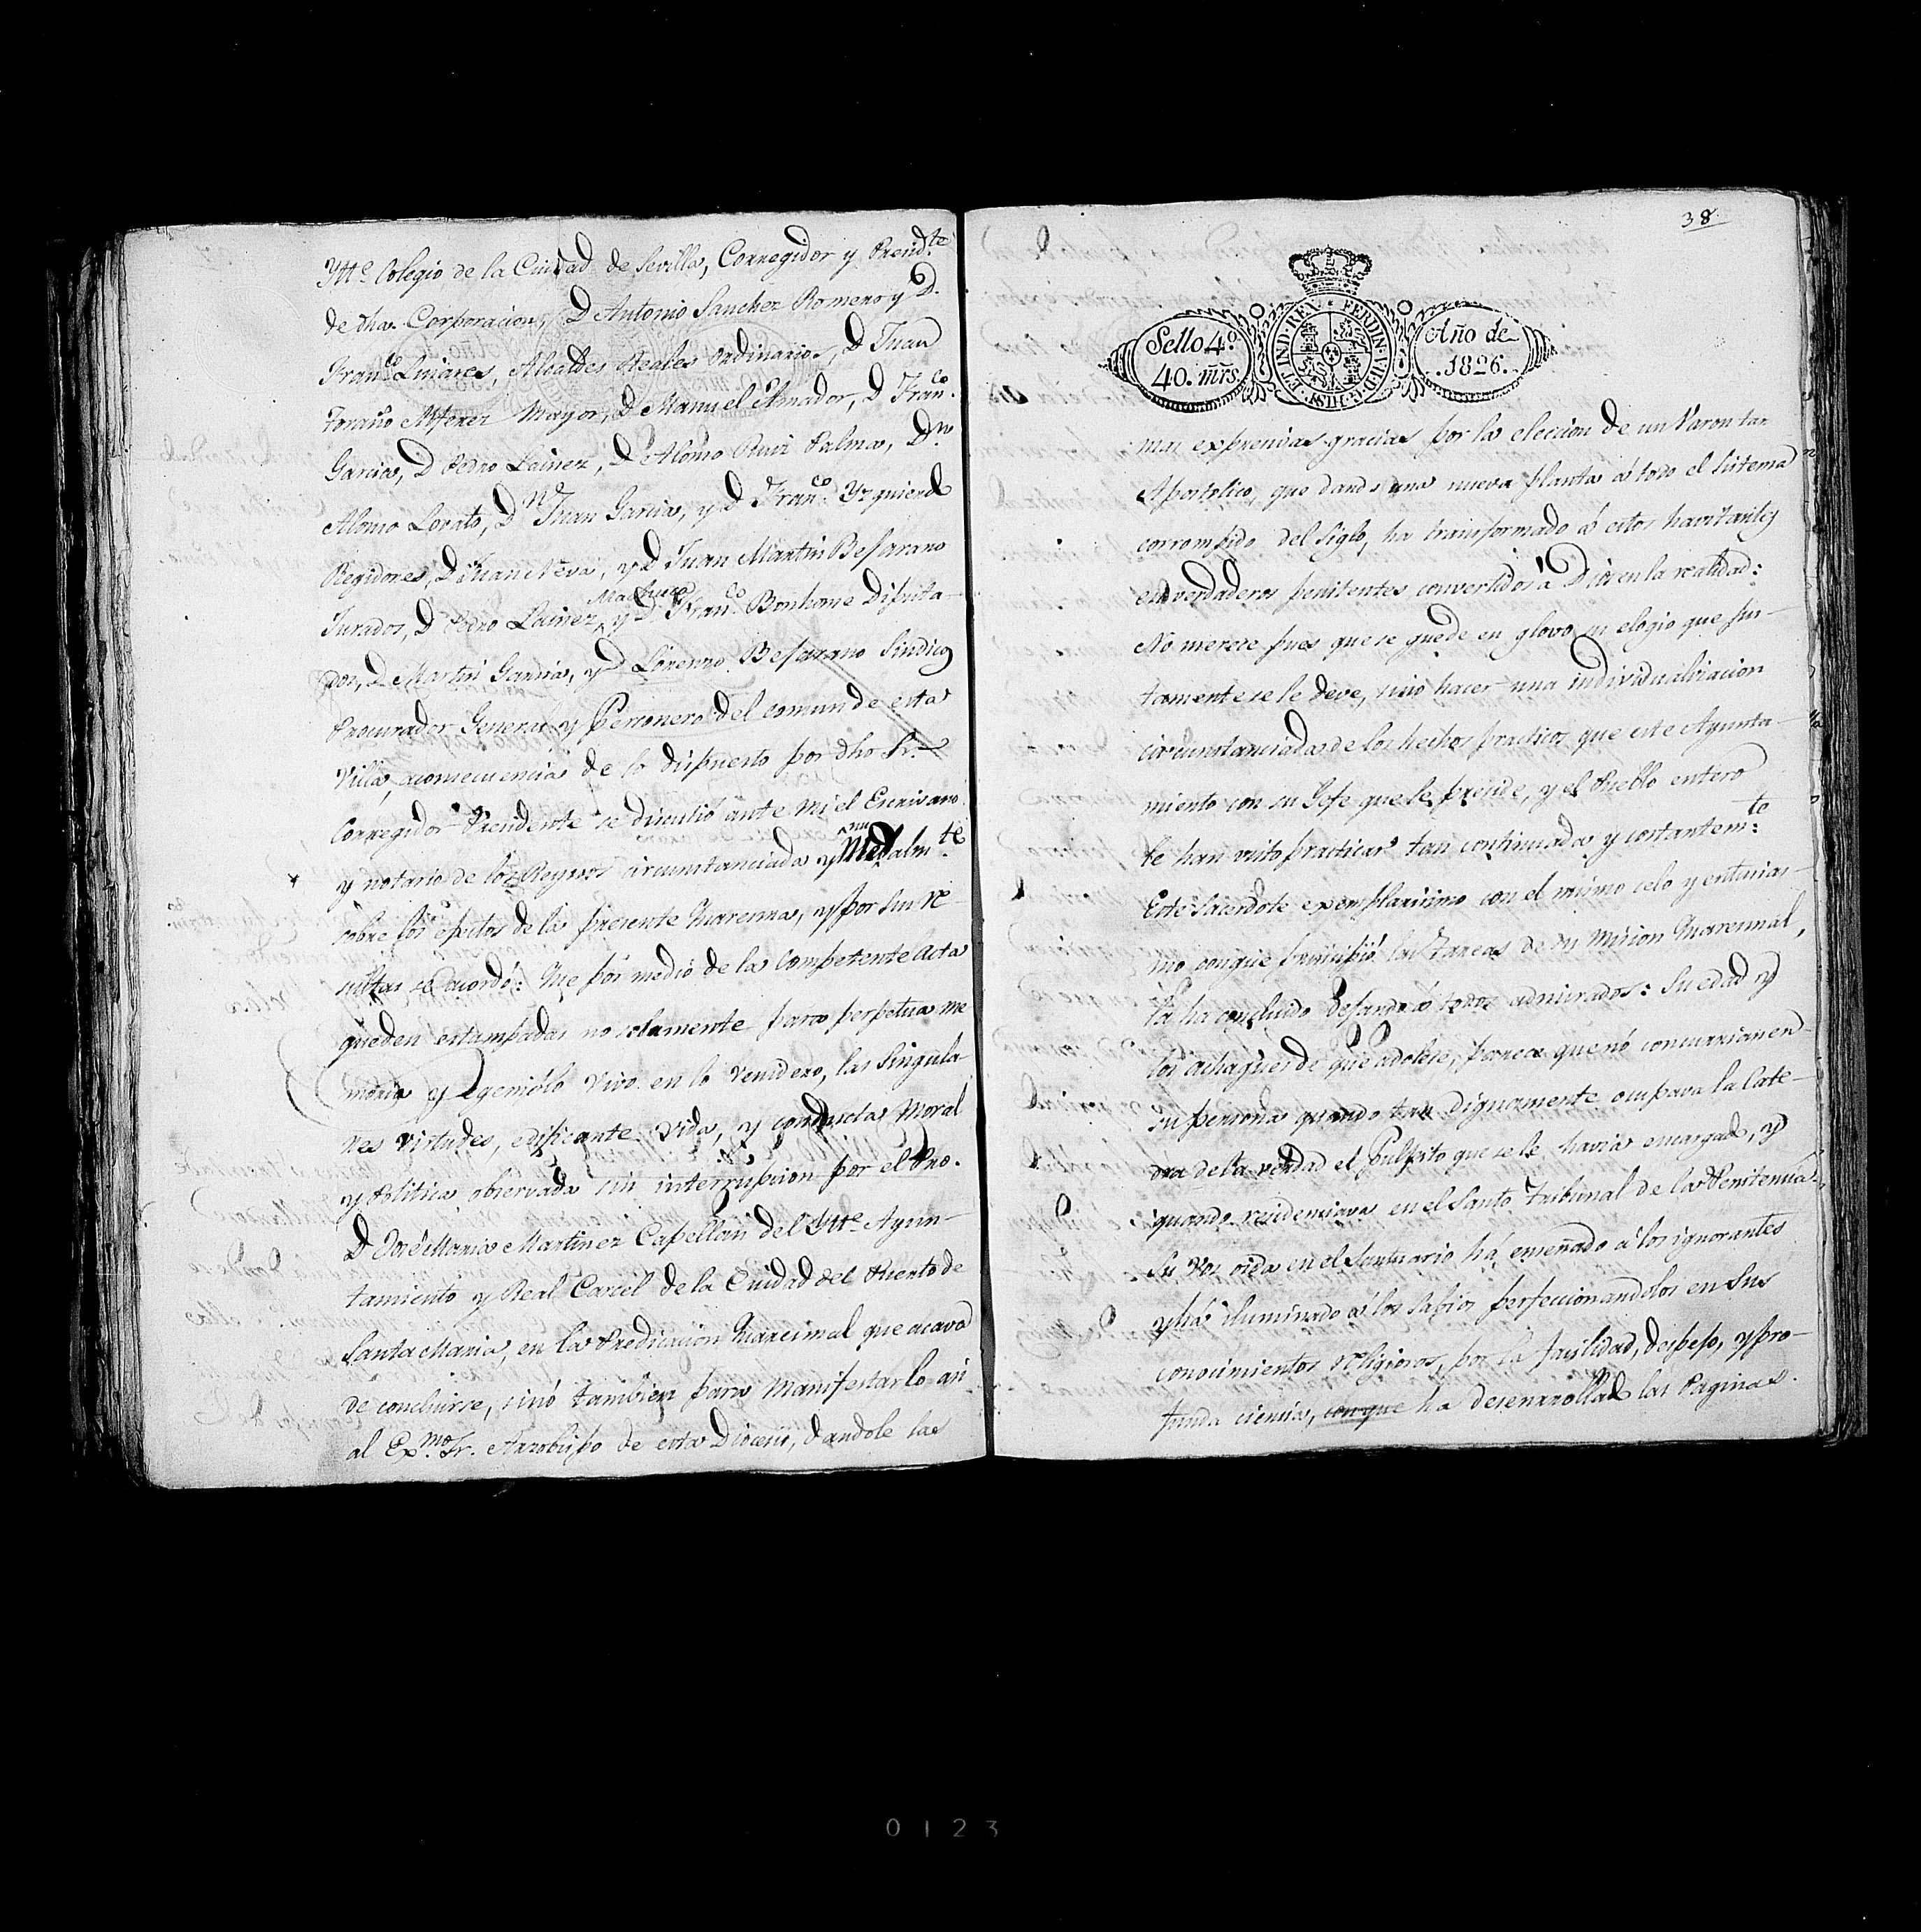 Ytt.e Colegio de la Ciudad de Sevilla, Corregidor y Presid.te
de dha. Corporacion, D Antonio Sanchez Romero y D.
Fran.co Linares, Alcaldes Reales ordinarios, D Juan
Toraño Alferez Mayor, D Manuel Amador, D Fran.co
Garcia, D Pedro Lainez, D Alonso Ruiz Palma, D.n
Alonso Lovato, D.n Juan Garcia, y D Fran.co Yzquierdo
Regidores, D Juan Neva, y D Juan Martin Besarano
Jurados, D Pedro Lainez Machuca y D Fran.co Bonhome Diputa-
dos, D Martin Garcia, y D Lorenzo Besarano Sindico
Procurador General y Personero del comun de esta
Villa, aconsecuencia de lo dispuesto por dho Sr.
Corregidor Presidente se discutió ante mi el Escrivano
y notario de los Reynos circunstanciada y
sobre los efectos de la presente Quaresma, y por sus re-
sultas se acordó: Que por medio de la competente acta
queden estampadas no solamente para perpetua me
moria y vivo en lo venidero, las singula-
res virtudes, edificante vida, y conducta Moral
y Politica observada sin interrupcion por el Pro.
D José Maria Martinez Capellan del Ytte. Ayun-
tamiento y Real Carcel de la Ciudad del Puerto de
Santa Maria, en la Predicacion Quaresimal que acava
de concluirse, sinó tambien para manifestarlo asi
al Ex.mo Sr. Arzobispo de esta Diocesis, dandole las
38.
FERDIN. VII. D. G. HISP. ET IND. REX
Sello 4.º
40. mrs
Año de
1826.
mas expresivas gracias por la eleccion de un Varon tan
Apostolico, que dando una nueva planta á todo el sistema
corrompido del siglo, ha transformado á estos havitantes
en verdaderos penitentes convertidos á Dios en la realidad:
No merece pues que se quede en glovo su elogio que jus-
tamente se le deve, sino hacer una individualizacion
circunstanciada de los hechos practicos que este Ayunta-
miento con su Gefe que le preside, y el Pueblo entero
le han visto practicar tan continuada y costantem.te
Este Sacerdote exemplarisimo con el mismo celo y entusias-
mo conque principió las tareas de su Mision Quaresmal,
la ha concluido dejando á todos admirados: Su edad y
los achaques de que adolece, parece que nó concurrian en
su persona quando tan dignamente ocupava la Cate-
dra de la verdad el Pulpito que se le havia encargado, y
quando residenciava en el Santo Tribunal de la Penitencia.
Su voz oida en el Santuario há enseñado á los ignorantes
y há iluminado á los sabios perfeccionandolos en sus
conocimientos religiosos, por la facilidad, despejo, y pro-
funda ciencia, conque ha desenrrollado las Paginas.
0123